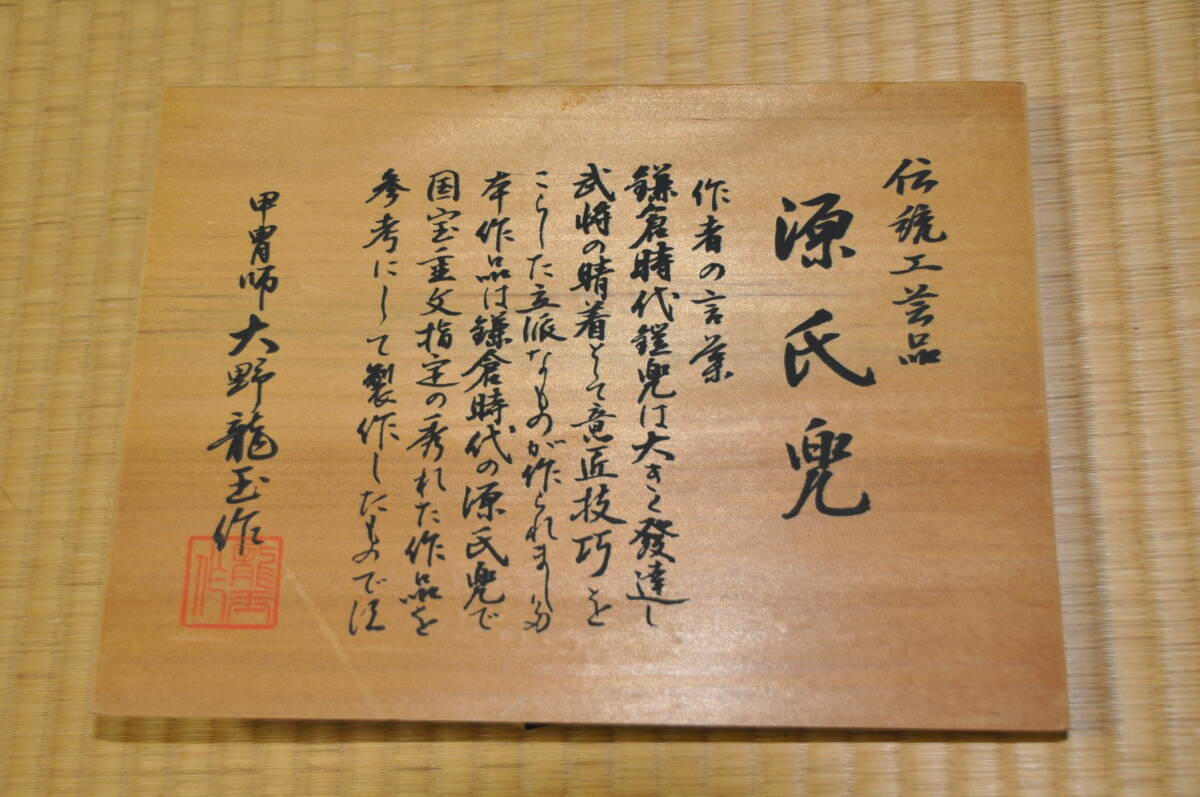 伝統工芸品
源氏兜
作者の言葉
鎌倉時代鎧兜は大きく發達し
武将の晴着として意匠技巧を
こらした立派なものが作られました
本作品は鎌倉時代の源氏兜で
国宝重文指定の秀れた作品を
参考にして製作したもので
甲冑師大野龍玉作
龍玉作